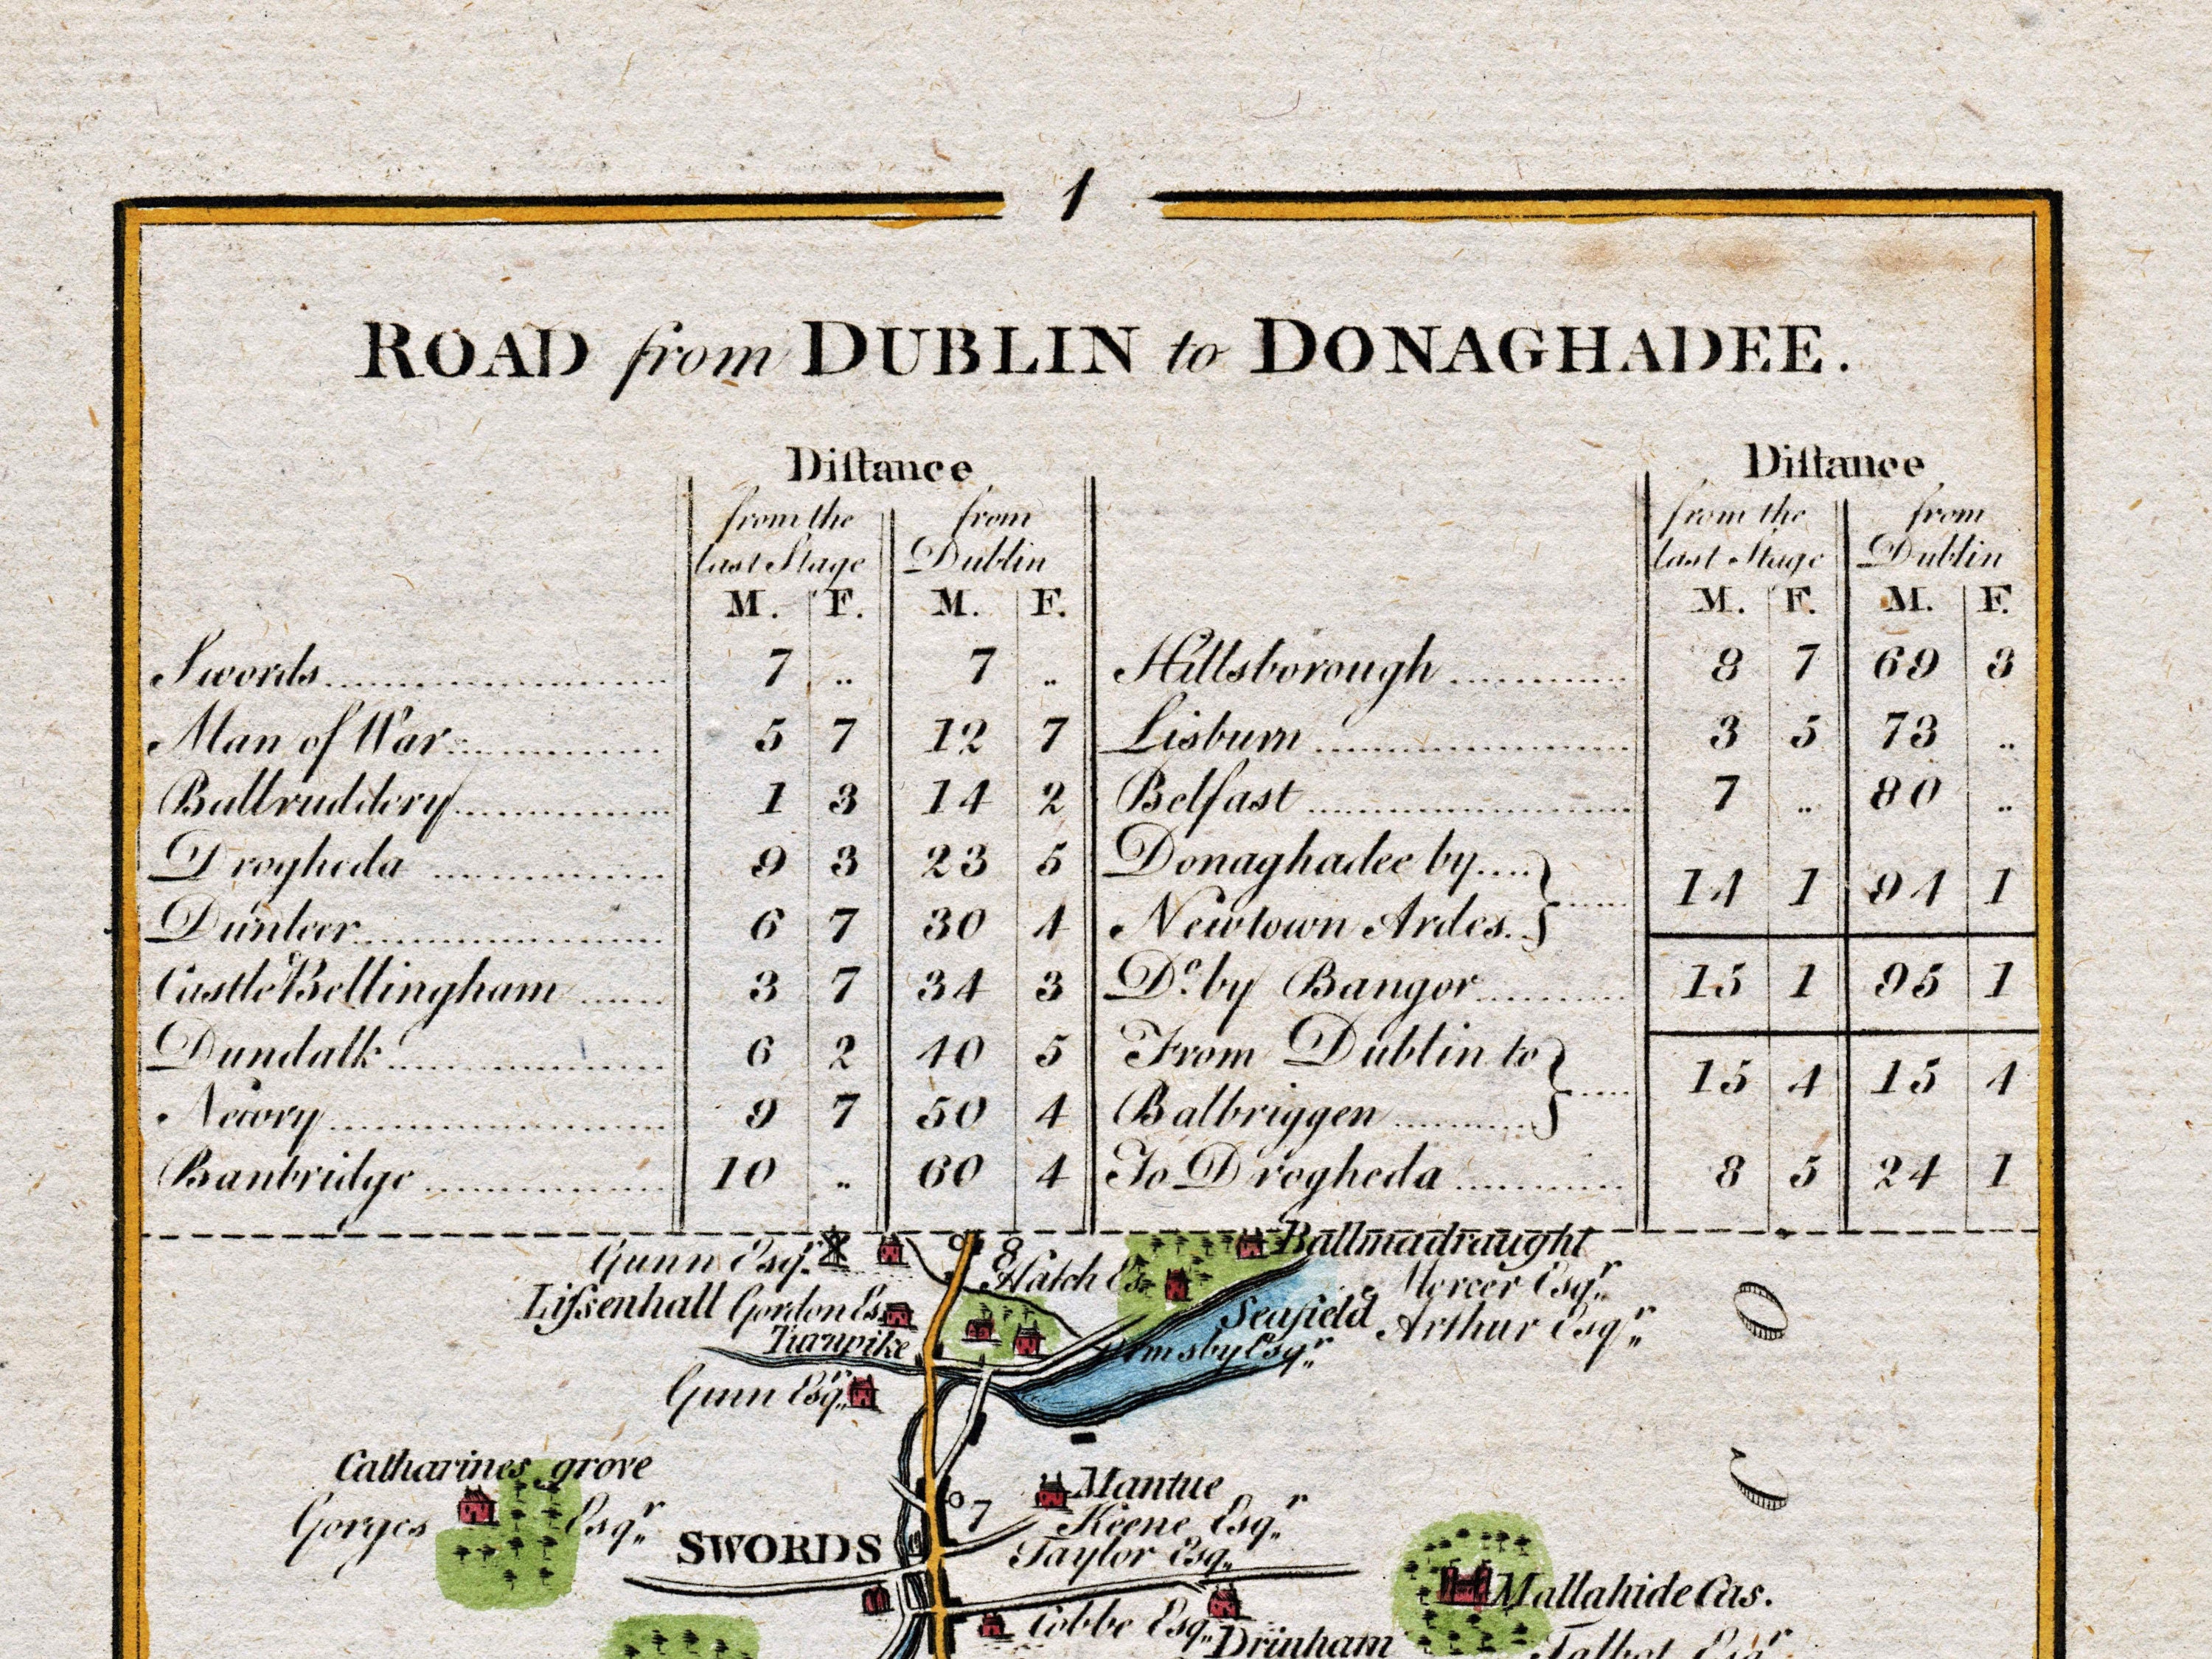 1
ROAD from DUBLIN to DONAGHADEE.
Distance
from the last Stage from Dublin
M. F. M. F.
Swords 7 .. 7 ..
Man of War 5 7 12 7
Balbruddery 1 3 14 2
Drogheda 9 3 23 5
Dunleer 6 7 30 4
Castle Bellingham 3 7 34 3
Dundalk 6 2 40 5
Newry 9 7 50 4
Banbridge 10 .. 60 4
Distance
from the last Stage from Dublin
M. F. M. F.
Hillsborough 8 7 69 3
Lisburn 3 5 73 ..
Belfast 7 .. 80 ..
Donaghadee by
Newtown Ardes. 14 1 94 1
Do. by Bangor 15 1 95 1
From Dublin to
Balbriggen 15 4 15 4
To Drogheda 8 5 24 1
Gunn Esqr.
8
Hatch Es.
Ballmadraught
Mercer Esqr.
Lissenhall Gordon Es.
Seafield
Arthur Esqr.
Turnpike
Ormsby Esqr.
Gunn Esqr.
Catharines grove
Gorges Esqr.
7
Mantue
Keene Esqr.
SWORDS
Taylor Esq.
Mallahide Cas.
Cobbe Esq.
Drinham
Talbot Esqr.